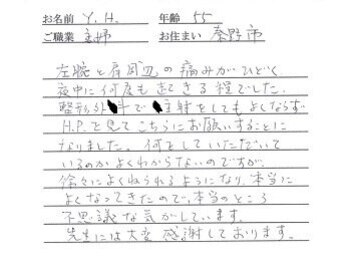 お名前 Y.H. 年齢 55
ご職業 主婦 お住まい 秦野市
左腕と肩周辺の痛みがひどく
夜中に何度も起きる程でした。
整形外科で注射をしてもよくならず
H.P.を見てこちらにお願いすることに
なりました。何をしていただいて
いるのかよくわからないのですが、
徐々によくねられるようになり、本当に
よくなってきたので、本当のところ
不思議な気がしています。
先生には大変感謝しております。